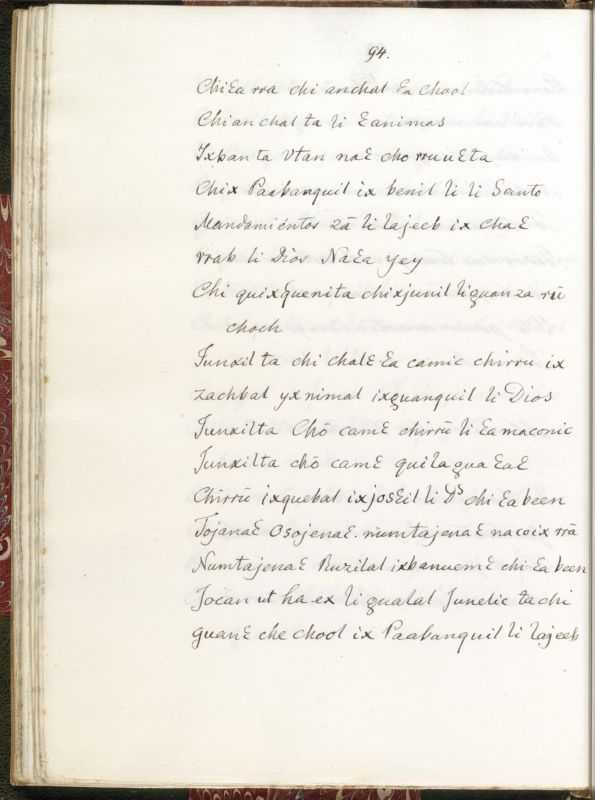 94.
Chiɛa rra chi anchal ɛa chool
Chian chal ta li ɛanimas
Ixban ta vtan naɛ cho rruuɛta
Chix Paabanquil ix benil li li Santo
Mandamiéntos zā li lajeeb ix chaɛ
rrab li Dios Naɛa yey
Chi quixquenita chixjunil li guan za rū
choch
Junxil ta chi chalɛ ɛa camic chirru ix
zachbal yx nimal ixguanquil li Dios
Junxilta Chō camɛ chirrū li ɛa maconic
Junxilta chō camɛ quila gua ɛaɛ
Chirrū ixquebal ixjosɛil li Ds chi ɛa been
Jojanaɛ osojenaɛ. numtajenaɛ nacoix rrā
Numtajenaɛ Ruzilal ixbanuemɛ chi ɛa been
Jocan ut ha ex li gualal Junelic ta chi
guanɛ che chool ix Paabanquil li lajeeb